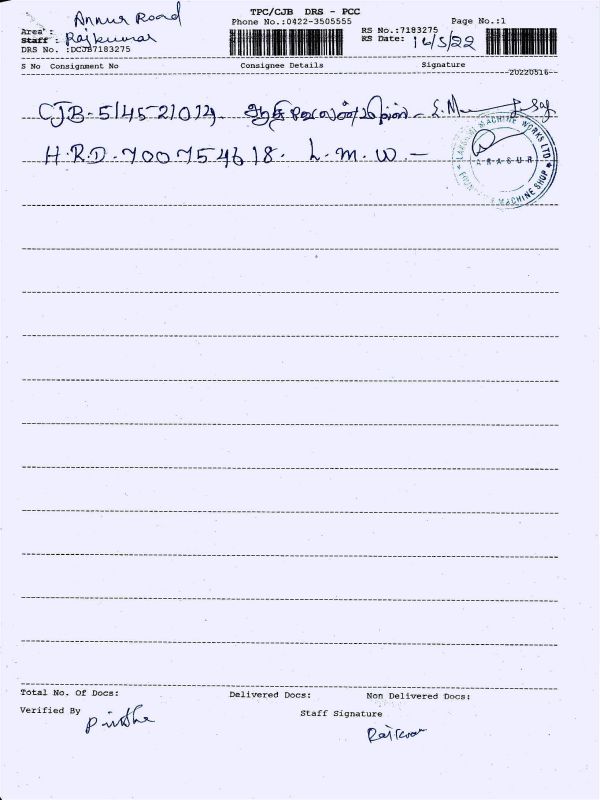 TPC/CJB DRS - PCC
Phone No.:0422-3505555 Page No.:1
Area : Annur Road
Staff : Rajkumar
DRS No. :DCJB7183275
RS No.:7183275
RS Date: 16/5/22
S No Consignment No Consignee Details Signature
20220516
CJB-514521014
H.R.D-700754618. L.M.W -
LAKSHMI MACHINE WORKS LTD.
ARASUR
MACHINE SHOP
Total No. Of Docs: Delivered Docs: Non Delivered Docs:
Verified By
Staff Signature